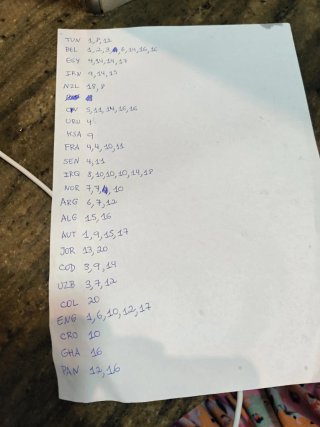 TUN 1, 8, 12
BEL 1, 2, 3, 6, 14, 16, 16
EGY 4, 14, 14, 17
IRN 9, 14, 15
NZL 18, 8
5, 11, 14, 15, 16
URU 4
KSA 9
FRA 4, 4, 10, 11
SEN 4, 11
IRQ 8, 10, 10, 10, 14, 18
NOR 7, 7, 10
ARG 6, 7, 12
ALG 15, 16
AUT 1, 9, 15, 17
JOR 13, 20
COD 3, 9, 19
UZB 3, 7, 12
COL 20
ENG 1, 6, 10, 12, 17
CRO 10
GHA 16
PAN 12, 16